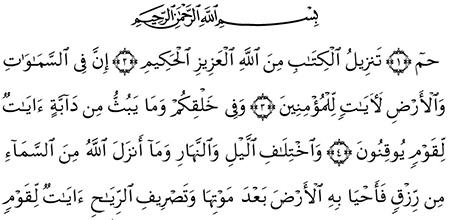 بِسْمِ اللَّهِ الرَّحْمَٰنِ الرَّحِيمِ
حمٓ ﴿١﴾ تَنزِيلُ الْكِتَابِ مِنَ اللَّهِ الْعَزِيزِ الْحَكِيمِ ﴿٢﴾ إِنَّ فِى السَّمَاوَاتِ
وَالْأَرْضِ لَأَيَاتٍ لِّلْمُؤْمِنِينَ ﴿٣﴾ وَفِى خَلْقِكُمْ وَمَا يَبُثُّ مِن دَآبَّةٍ ءَايَاتٌ
لِّقَوْمٍ يُوقِنُونَ ﴿٤﴾ وَاخْتِلَافِ الَّيْلِ وَالنَّهَارِ وَمَآ أَنزَلَ اللَّهُ مِنَ السَّمَآءِ
مِن رِّزْقٍ فَأَحْيَا بِهِ الْأَرْضَ بَعْدَ مَوْتِهَا وَتَصْرِيفِ الرِّيَاحِ ءَايَاتٌ لِّقَوْمٍ